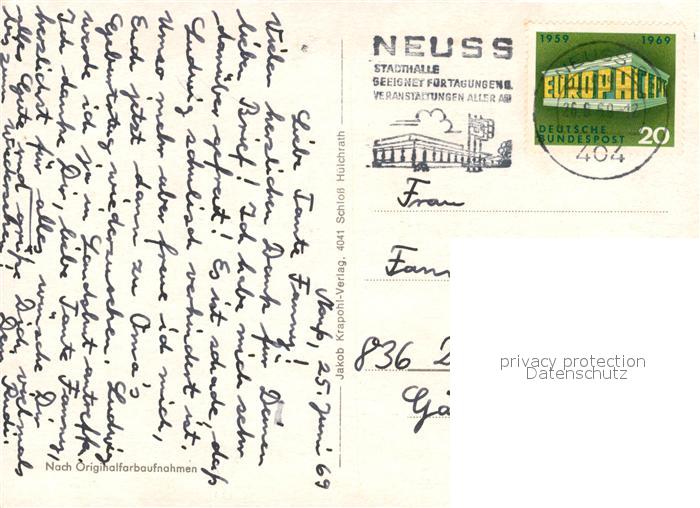 Neuss, 25. Juni 69
Liebe Tante Fanny!
Vielen herzlichen Dank für Deinen
lieben Brief! Ich habe mich sehr
darüber gefreut! Es ist schade, daß
Ludwig schulisch verhindert ist.
Umso mehr aber freue ich mich,
Euch jetzt dann zu Oma's
Geburtstag wiederzusehen. Ludwig
werde ich ja in Landshut antreffen.
Ich danke Dir, liebe Tante Fanny,
herzlichst für alles, wünsche Dir
alles Gute und grüße Dich vielmals
bis zum Wiedersehen! Dein Rudi.
Nach Originalfarbaufnahmen
Jakob Krapohl-Verlag, 4041 Schloß Hülchrath
NEUSS
STADTHALLE
GEEIGNET FÜR TAGUNGEN U.
VERANSTALTUNGEN ALLER ART
1959 1969
EUROPA CEPT
DEUTSCHE
BUNDESPOST 20
404
Frau
Fann
836 D
Gä
privacy protection
Datenschutz